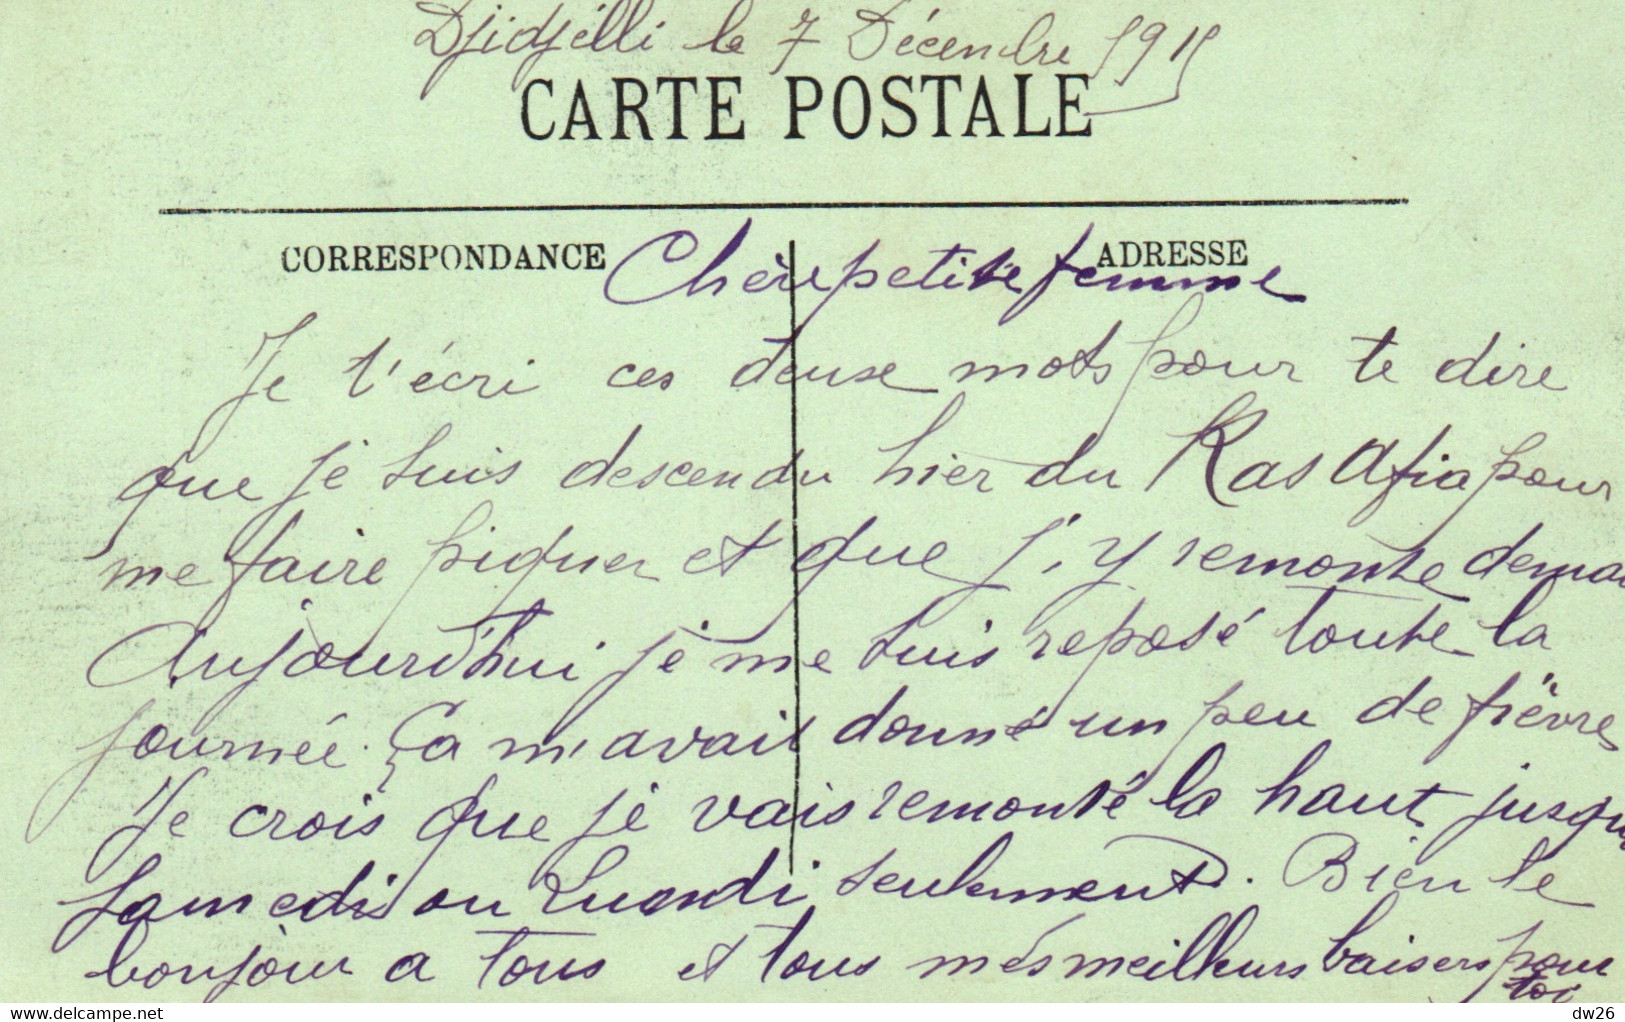 Djidjelli le 7 Décembre 1915
CARTE POSTALE
CORRESPONDANCE
ADRESSE
Chère petite femme
Je t'écri ces deux mots pour te dire
que je suis descendu hier du Ras Afia pour
me faire piquer et que j'y remonte demai
Aujourd'hui je me suis reposé toute la
journée. Ça m'avait donné un peu de fièvre
Je crois que je vais remonté la haut jusqu
Samedi ou Lundi seulement. Bien le
bonjour a tous et tous més meilleurs baisers pour
toi
www.delcampe.net
dw26